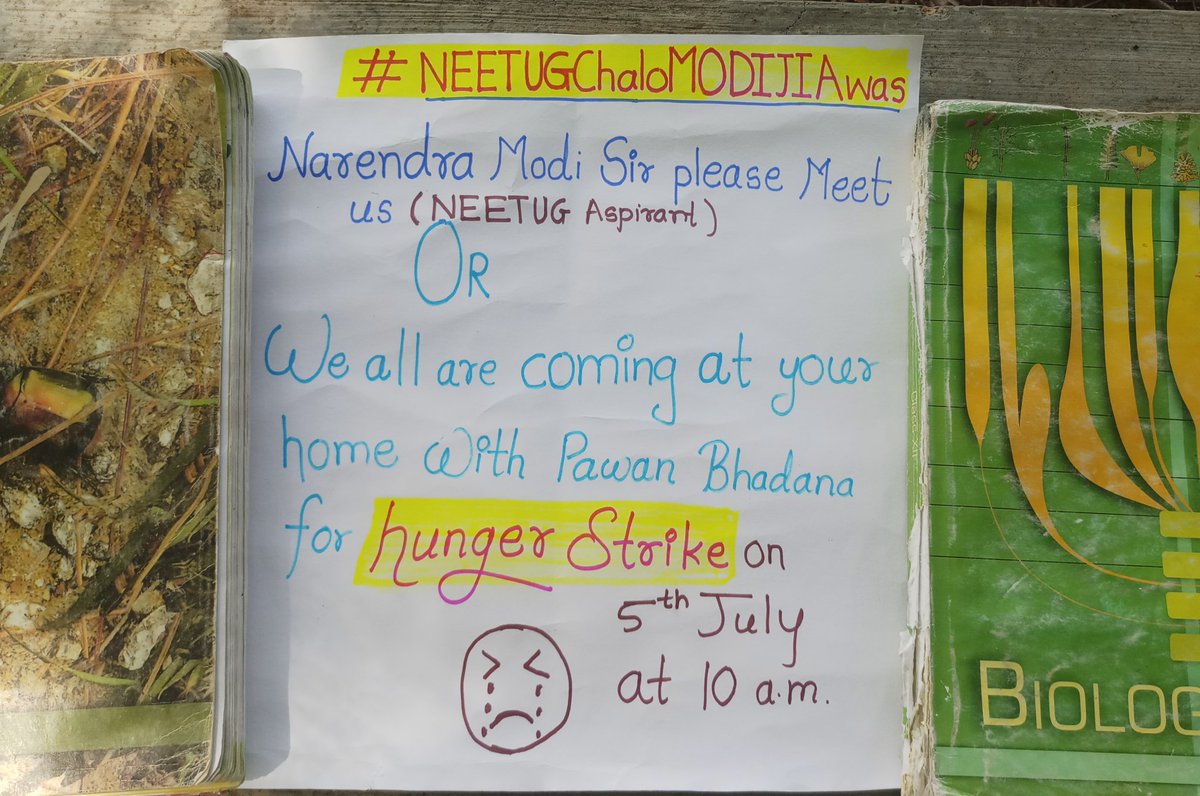 #NEETUGChaloMODIJIAwas
Narendra Modi Sir please Meet
us (NEETUG Aspirant)
OR
We all are coming at your
home with Pawan Bhadana
for hunger Strike on
5th July
at 10 a.m.
BIOLOG